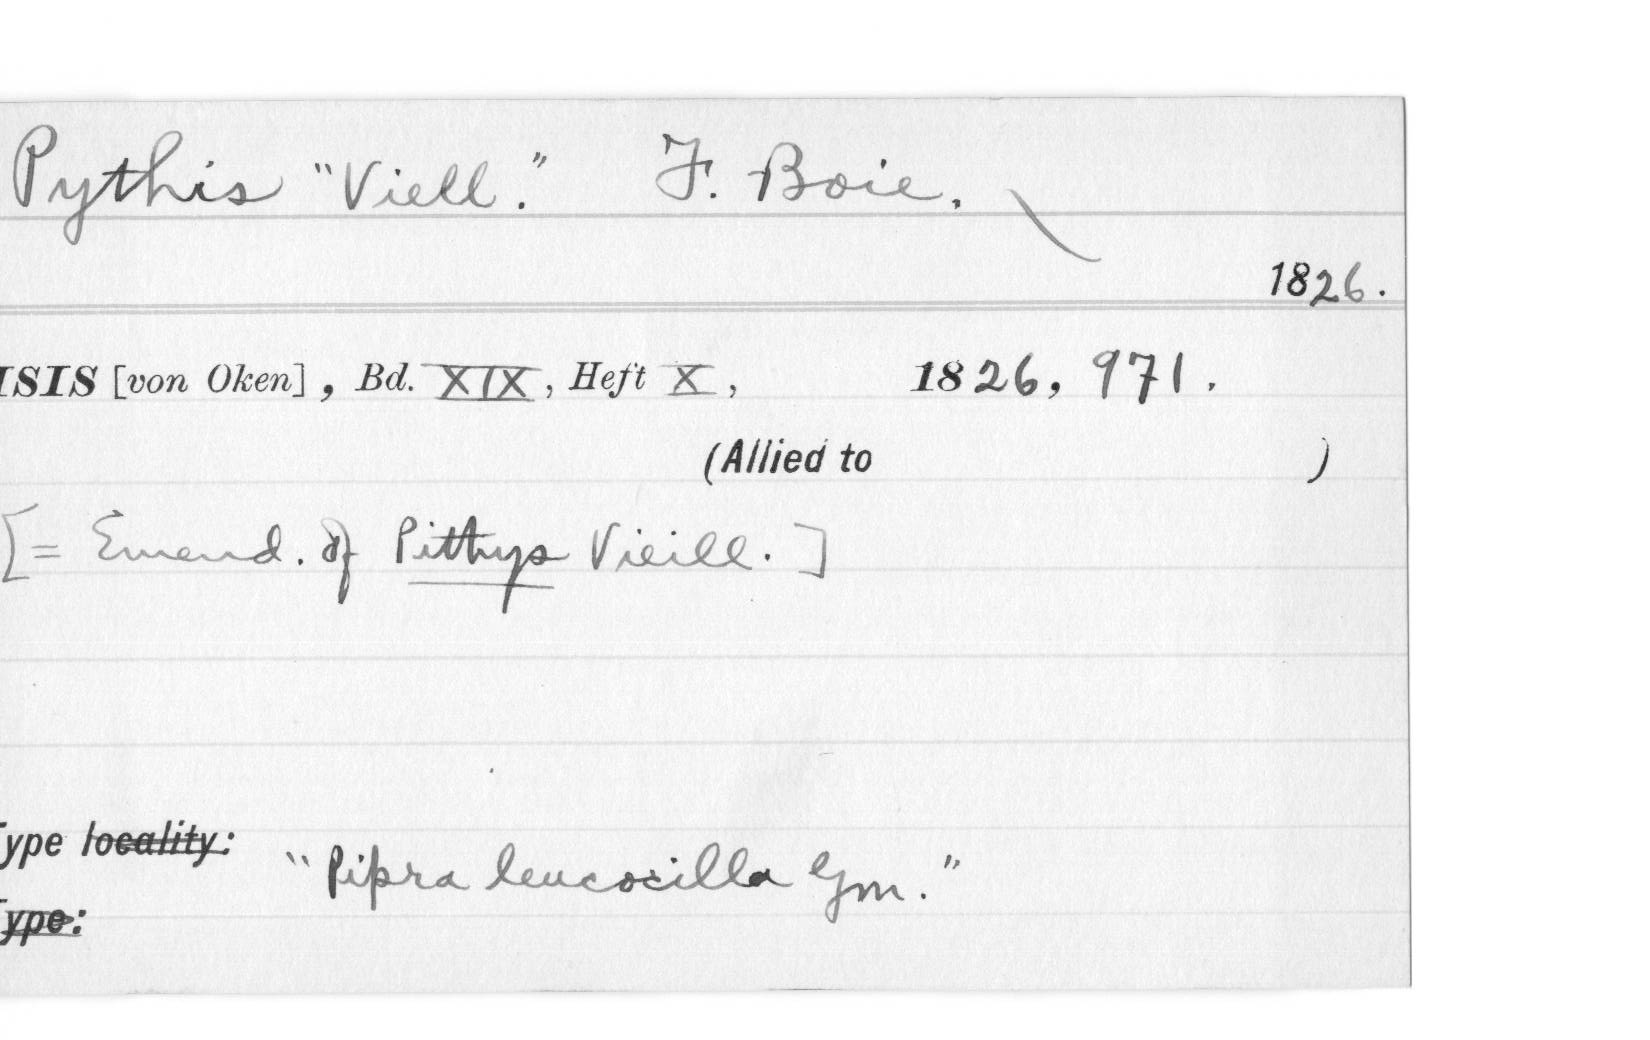 Pythis "Viell." F. Boie.
1826.
ISIS [von Oken], Bd. XIX, Heft X, 1826, 971.
(Allied to )
[= Emend. of Pithys Vieill.]
Type locality:
"Pipra leucocilla Gm."
Type: